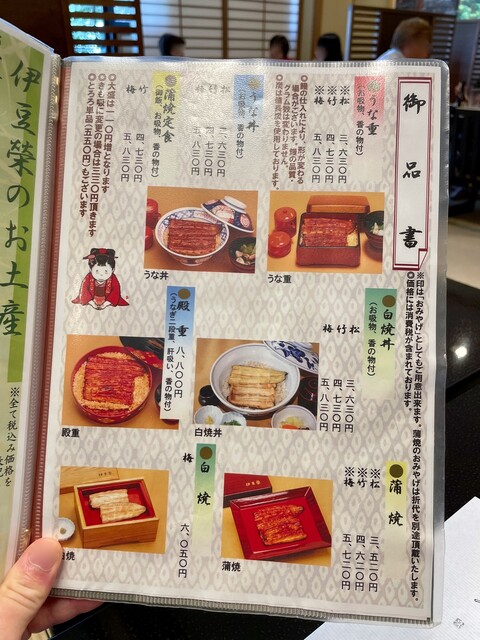 御品書
※印は「おみやげ」としてもご用意出来ます。蒲焼のおみやげは折代を別途頂戴いたします。
◎価格には消費税が含まれております。
うな重
(お吸物、香の物付)
※松 三、六三〇円
※竹 四、七三〇円
※梅 五、八三〇円
◎鰻の仕入れにより、形が変わる
場合がございます。鰻の品質・
グラム数は変わりません。
◎鰻は備長炭を使用しております。
うな丼
(お吸物、香の物付)
松 三、六三〇円
竹 四、七三〇円
梅 五、八三〇円
蒲焼定食
(御飯、お吸物、香の物付)
竹 四、七三〇円
梅 五、八三〇円
◎大盛は一一〇円増となります
◎きも吸に変更の場合は三三〇円頂きます
◎とろろ単品(五五〇円)もございます
うな重
うな丼
白焼丼
(お吸物、香の物付)
松 三、六三〇円
竹 四、七三〇円
梅 五、八三〇円
殿重 八、八〇〇円
(うなぎ二段重、肝吸い、香の物付)
白焼丼
殿重
蒲焼
※松 三、五二〇円
※竹 四、六二〇円
※梅 五、七二〇円
白焼
梅 六、〇五〇円
蒲焼
白焼
伊豆榮のお土産
※全て税込み価格を